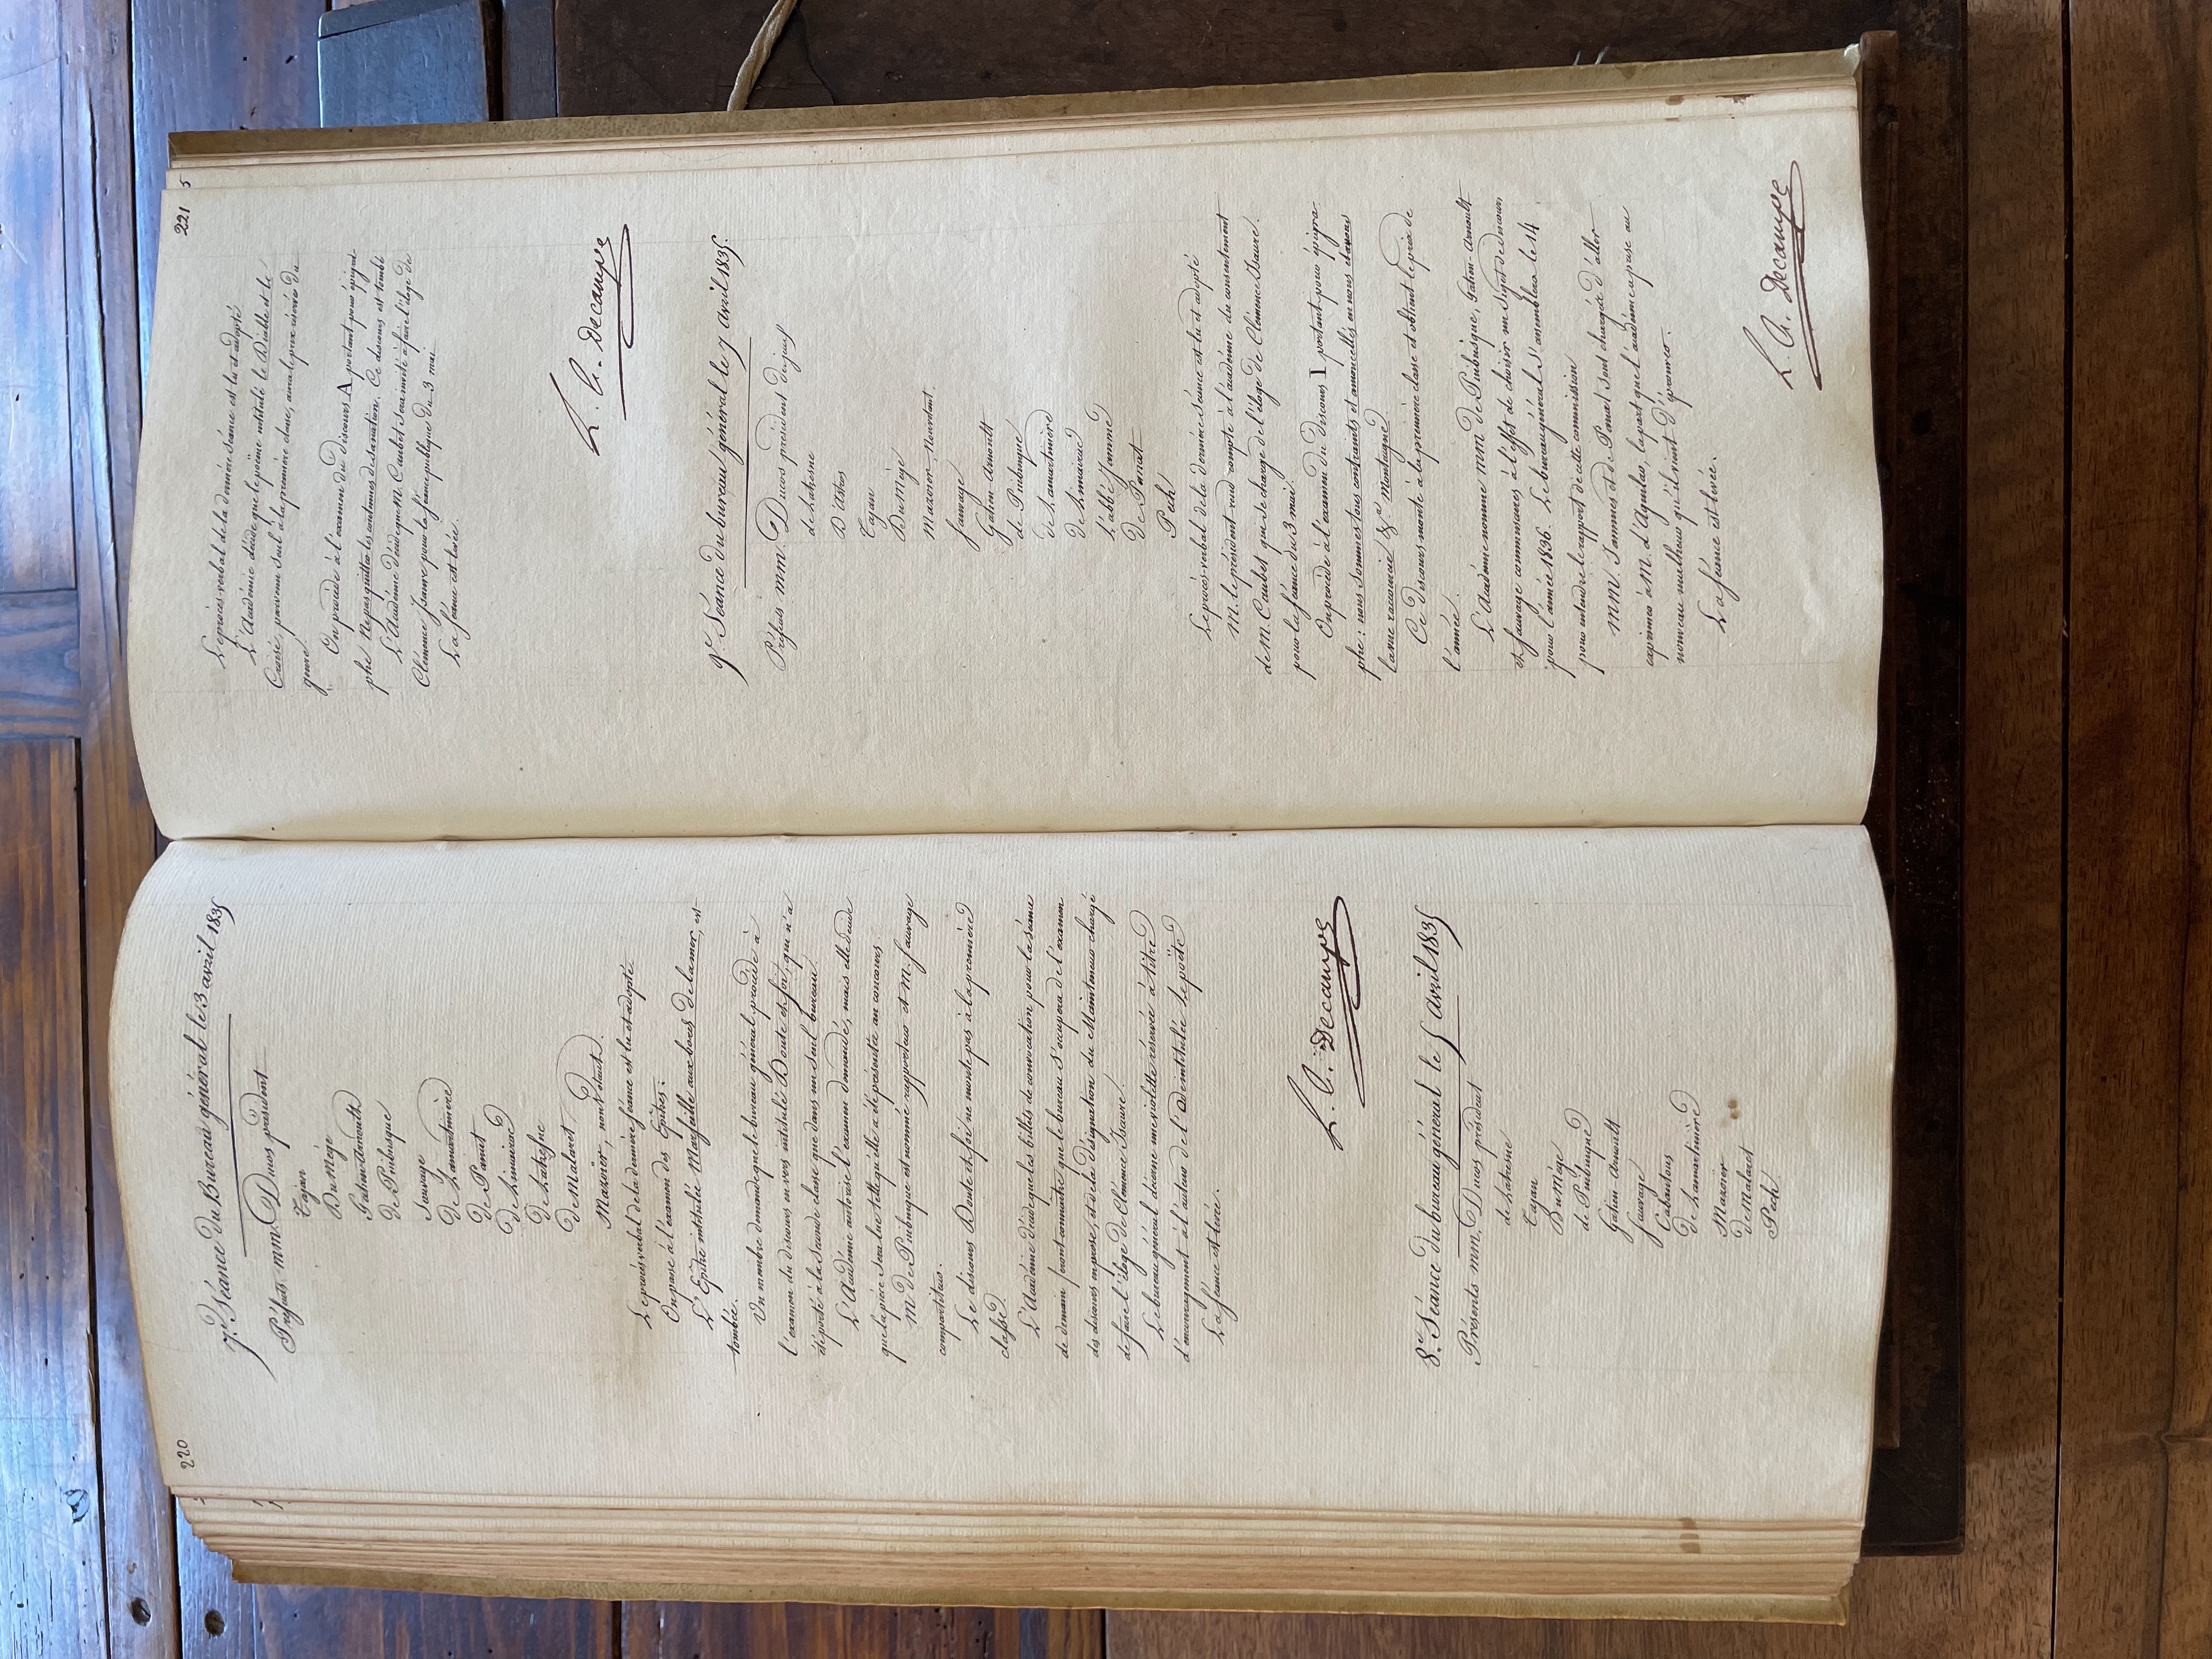 220
7.e Séance du Bureau général le 3 avril 1835
Présents mm. Ducos président
Tajan
Du Mège
Gatien-Arnoult
de Puibusque
Sauvage
de Lamartinière
de Panat
de Limairac
de Lahesne
de Malaret
Mazoïer, nouvt élant
Le procès verbal de la dernière séance est lu et adopté
On passe à l'examen des Epîtres:
L'Epître intitulée Marseille aux bords de la mer, est
tombée.
Un membre demande que le bureau général procède à
l'examen du discours en vers intitulé Doute et foi, qui n'a
été porté à la seconde classe que dans un seul bureau.
L'Académie autorise l'examen demandé, mais elle décide
que la pièce sera lue telle qu'elle a été présentée au concours
M. de Puibusque est nommé rapporteur et M. Sauvage
compartiteur.
Le discours Doute et foi ne monte pas à la première
classe.
L'Académie décide que les billets de convocation pour la séance
de demain feront connaître que le bureau s'occupera de l'examen
des discours en prose, et de la désignation du Mainteneur chargé
de faire l'éloge de Clémence Isaure.
Le bureau général décerne une violette réservée à titre
d'encouragement à l'auteur de l'Ode intitulée le poëte
La séance est levée.
L. A. Decampe
8.e Séance du bureau général le 5 avril 1835
Présents mm. Ducos président
de Lahesne
Tajan
Du Mège
de Puibusque
Gatien-Arnoult
Sauvage
Cabantous
de Lamartinière
Mazoïer
de Malaret
Pech
221
Le procès-verbal de la dernière séance est lu et adopté
L'Académie décide que le poème intitulé le Diable et le
Croisé parvenu seul à la première classe, aura le prix réservé du
genre.
On procède à l'examen du discours A portant pour épigra-
phe Ne pas quitter les coutumes de sa nation. Ce discours est tombé
L'Académie décide que M. Caubet sera invité à faire l'éloge de
Clémence Isaure pour la séance publique du 3 mai.
La séance est levée.
L. A. Decampe
9.e Séance du bureau général le 7 avril 1835
Présents mm. Ducos président
de Lahesne
D'Astros
Tajan
Du Mège
Mazoïer
Sauvage
Gatien-Arnoult
de Puibusque
de Lamartinière
de Limairac
l'abbé Jamme
de Panat
Pech
Le procès-verbal de la dernière séance est lu et adopté
M. le président rend compte à l'académie du consentement
de M. Caubet qui se charge de l'éloge de Clémence Isaure
pour la séance du 3 mai.
On procède à l'examen du discours I portant pour épigra-
phe: nous sommes tous contraints et amoncellés en nous et avons
la vue raccourcie &.a Montaigne.
Ce discours monte à la première classe et obtient le prix de
l'année.
L'Académie nomme MM de Puibusque, Gatien-Arnoult
et Sauvage commissaires à l'effet de choisir un sujet de discours
pour l'année 1836. Le bureau général s'assemblera le 14
pour entendre le rapport de cette commission
MM. Jammes et de Panat sont chargés d'aller
exprimer à M. d'Aguilar, la part que l'académie a prise au
nouveau malheur qu'il vient d'éprouver.
La séance est levée.
L. A. Decampe